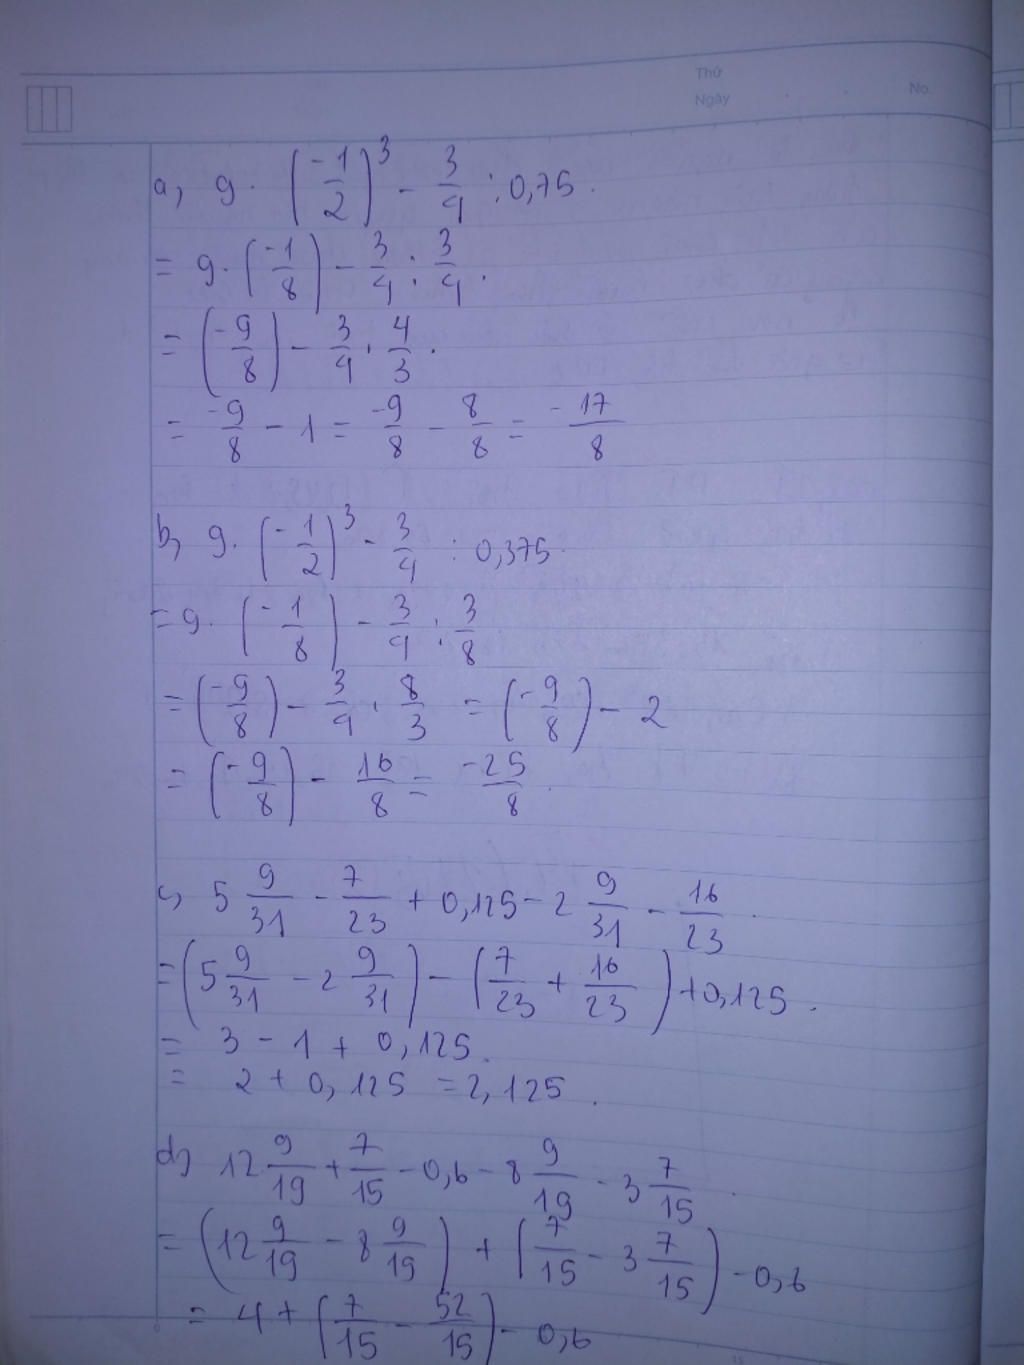 Thứ
Ngày No.
a, 9 . (-1/2)^3 - 3/4 : 0,75.
= 9 . (-1/8) - 3/4 : 3/4.
= (-9/8) - 3/4 . 4/3.
= -9/8 - 1 = -9/8 - 8/8 = -17/8
b, 9 . (-1/2)^3 - 3/4 : 0,375.
= 9 . (-1/8) - 3/4 : 3/8
= (-9/8) - 3/4 . 8/3 = (-9/8) - 2
= (-9/8) - 16/8 = -25/8.
c, 5 9/31 - 7/23 + 0,125 - 2 9/31 - 16/23.
= (5 9/31 - 2 9/31) - (7/23 + 16/23) + 0,125.
= 3 - 1 + 0,125.
= 2 + 0,125 = 2,125.
d, 12 9/19 + 7/15 - 0,6 - 8 9/19 - 3 7/15.
= (12 9/19 - 8 9/19) + (7/15 - 3 7/15) - 0,6
= 4 + (7/15 - 52/15) - 0,6